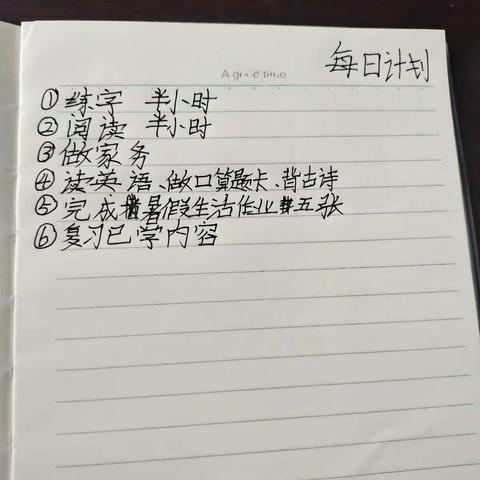 每日计划
A good time
①练字 半小时
②阅读 半小时
③做家务
④读英语、做口算题卡、背古诗
⑤完成暑假生活作业五张
⑥复习已学内容